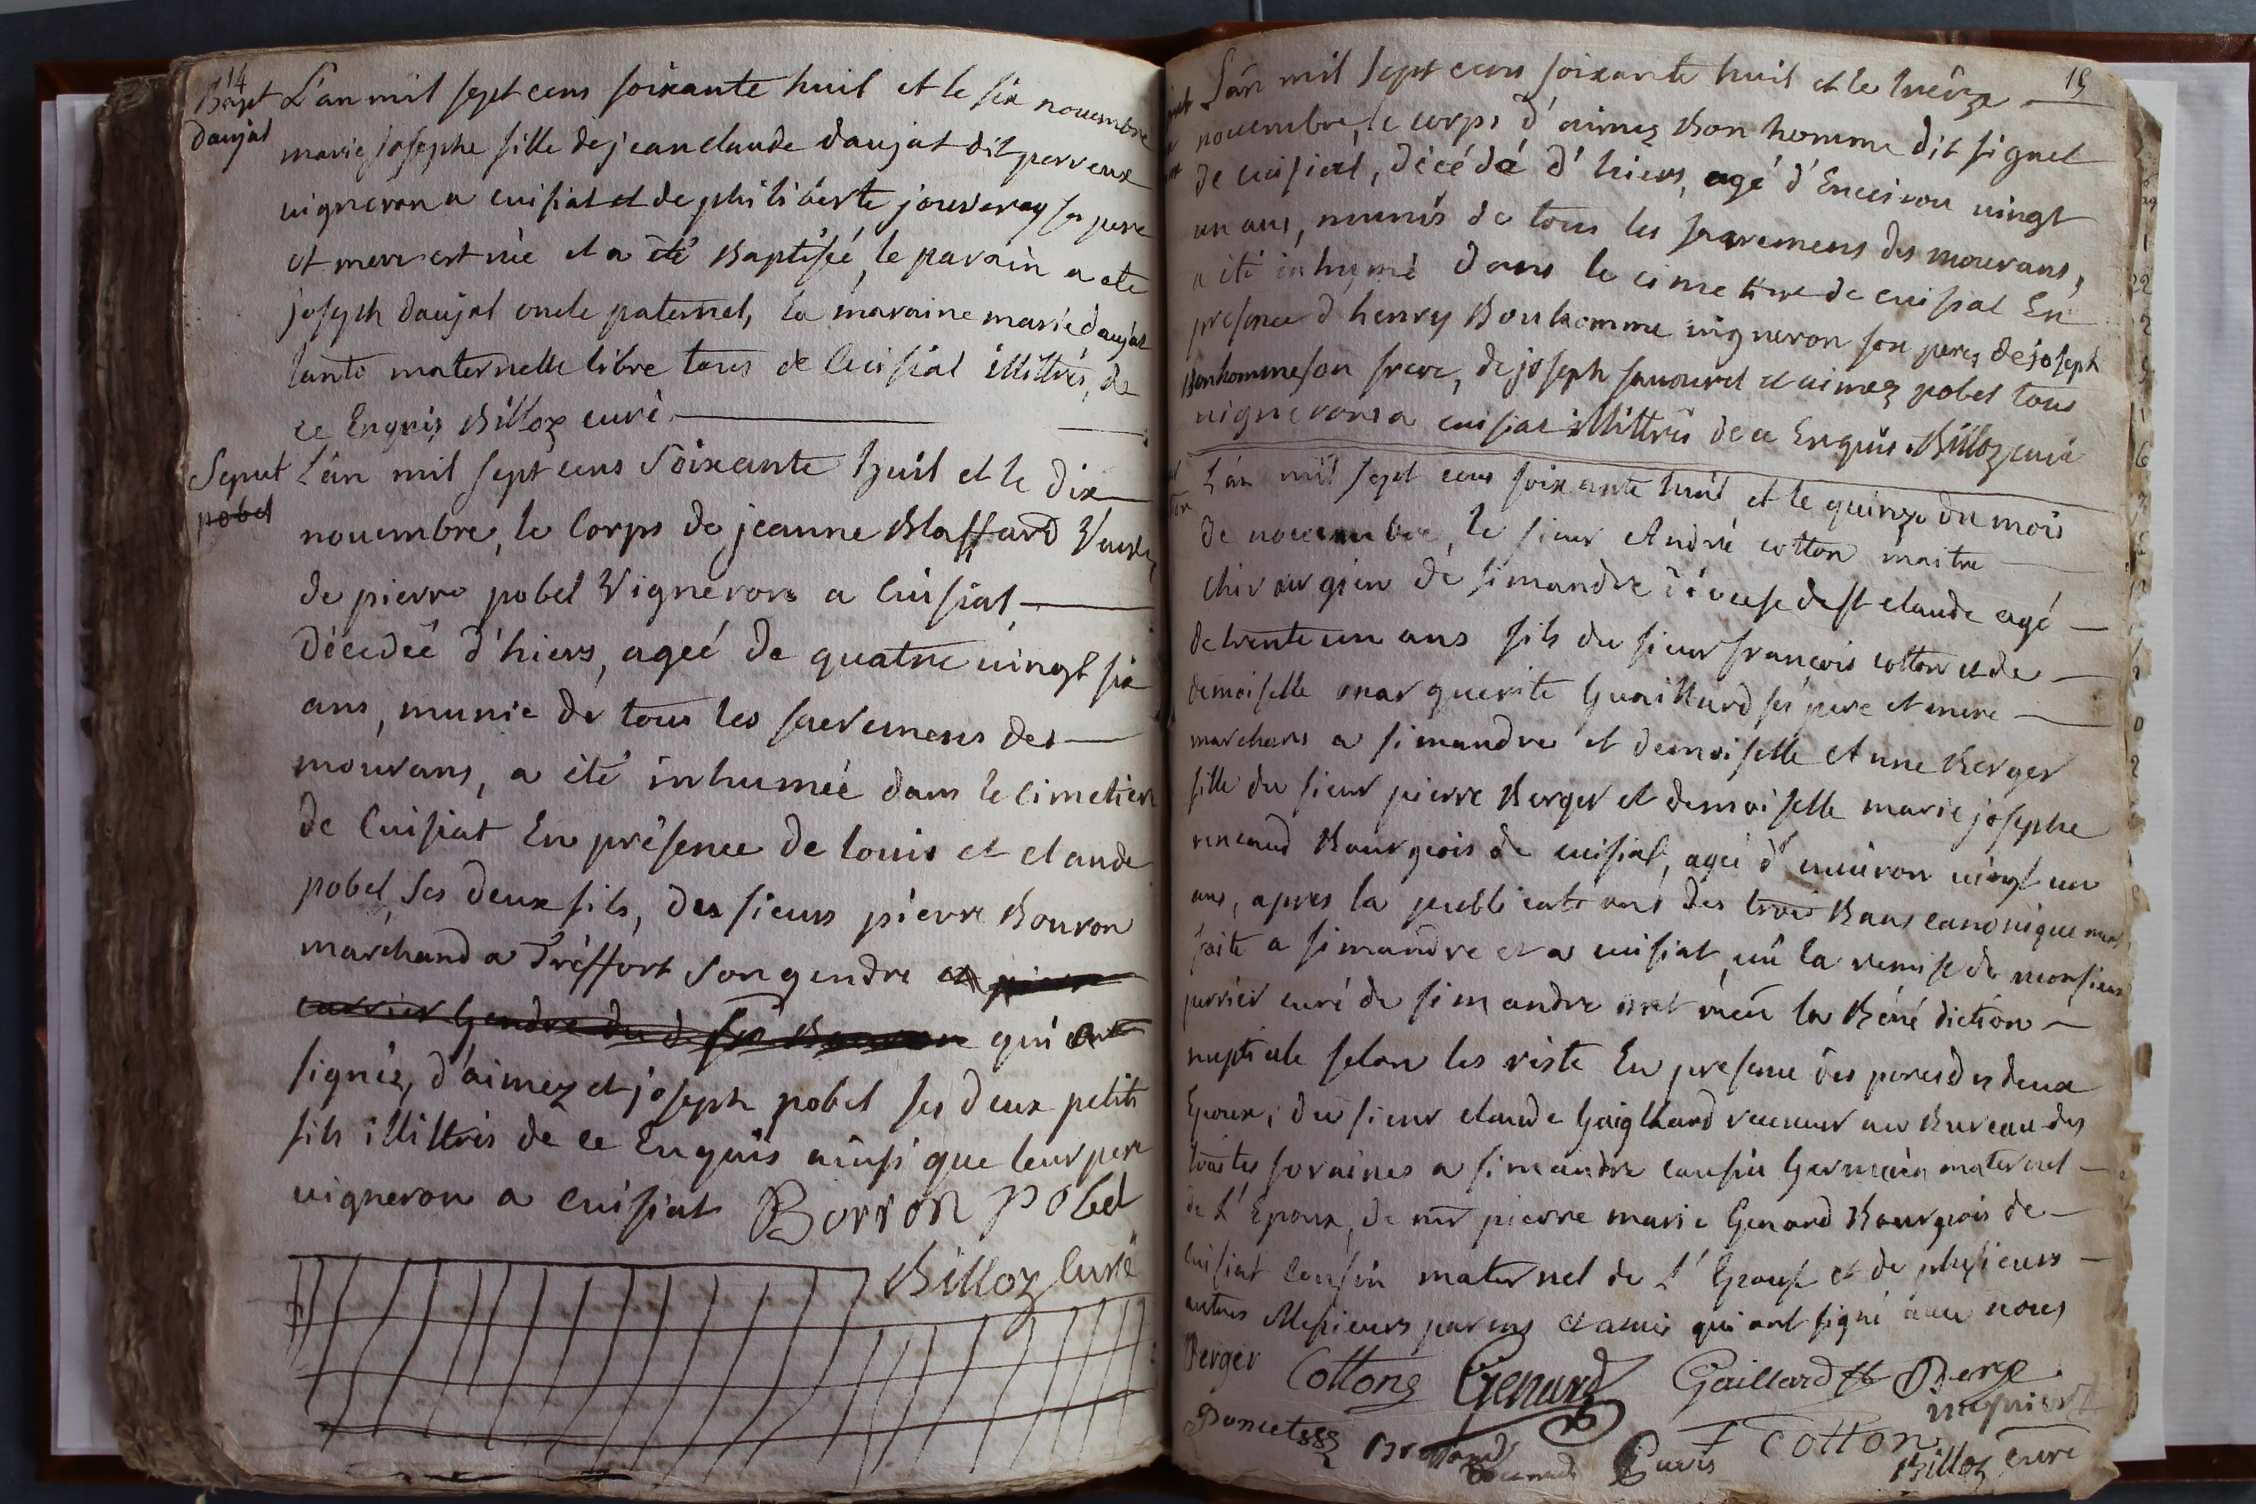 14
Bapt
daujat
L'an mil sept cens soixante huit et le six novembre
marie josephe fille de jean claude daujat dit perveux
vigneron a cuisiat et de philiberte jouvaray ses pere
et mere est née et a été Baptisée, le parain a eté
joseph daujat oncle paternel, la maraine marie daujat
tante maternelle libre tous de Cuisiat illittrés, de
ce Enquis Billoz curé
Sepult
pobel
L'an mil sept cens Soixante huit et le dix
novembre, le Corps de jeanne Blaffard Veuve
de pierre pobel Vigneron a Cuisiat
décedeé d'hiers, ageé de quatre vingt six
ans, munie de tous les sacremens des
mourans, a été inhumeé dans le cimetiere
de Cuisiat En présence de louis et claude
pobel, ses deux fils, des sieurs pierre Bouron
marchand a Tréffort son gendre et pierre
currier Gendre du d sr Bouron qui ont
signéz, d'aimez et joseph pobel ses deux petits
fils illittrés de ce Enquis ainsi que leur pere
vigneron a cuisiat Borron pobel
Billoz Curé
15
L'an mil sept cens soixante huit et le treize
novembre, le corps d'aimez Bon homme dit signet
de cuisiat, décédé d'hiers, agé d'Environ vingt
un ans, munis de tous les sacremens des mourans,
a été inhumé dans le cimetiere de cuisiat En
presence d'henry Bonhomme vigneron son pere, de joseph
Bonhomme son frere, de joseph savouret et aimez pobel tous
vignerons a cuisiat illittrés de ce Enquis Billoz curé
L'an mil sept cens soixante huit et le quinze du mois
de novembre, le sieur André cotton maitre
chirurgien de simandre diocese de st claude agé
de trente un ans fils du sieur françois cotton et de
demoiselle marguerite Guaillard ses pere et mere
marchans a simandre et demoiselle Anne Berger
fille du sieur pierre Berger et demoiselle marie josephe
renaud Bourgeois de cuisiat, ageé d'environ vingt un
ans, apres la publications des trois Bans canoniquement
faite a simandre et a cuisiat, vû la remise de monsieur
perrier curé de simandre ont reçu la Béné diction
nuptiale selon les riste En presence des peres des deux
Epoux, du sieur claude Gaigllard receveur au Bureau des
traites foraines a simandre cousin Germain maternel
de L'Epoux, de mr pierre marie Genard Bourgeois de
cuisiat cousin maternel de L'Epouse et de plusieurs
autres Messieurs parens et amis qui ont signé avec nous
Berger Cottons Genard Gaillard Berge
Poncet Cotton
Puvis Billoz curé